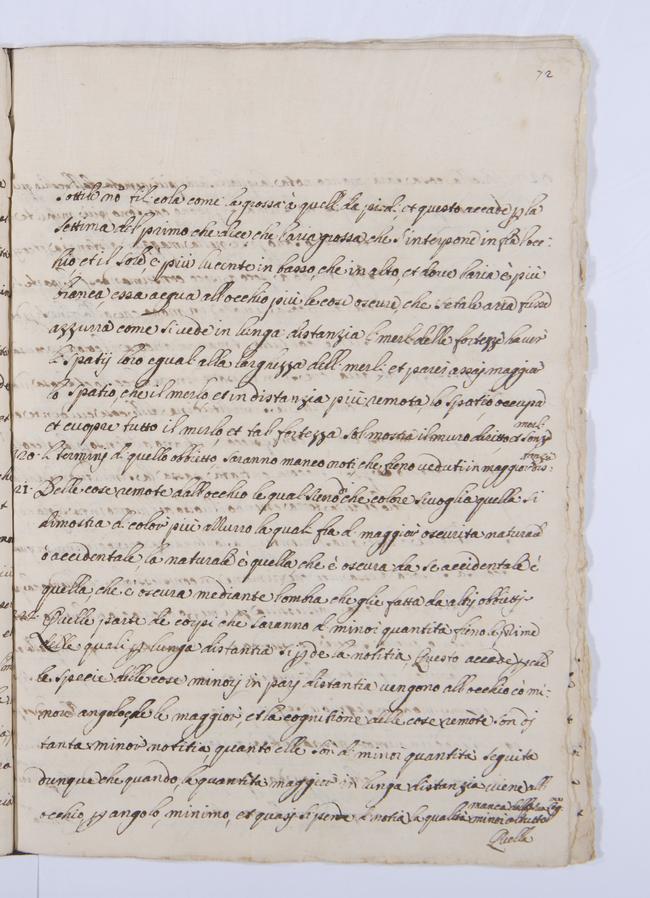 72
sottile no' si cola come la grossa è quell. da piedi. et questo accade p. la
settima del primo che dice che l'aria grossa che s'interpone infra l'oc=
chio et il sole, è più lucente in basso, che in alto, et dove l'aria è più
bianca essa all'occhio più le cose oscure, che se tale aria fusse
azzurra come si vede in lunga distanzia li merli delle fortezze haver
li spatij loro eguali alla larghezza delli merli, et parer assai maggior
lo spatio, che il merlo et in distanzia più remota lo spatio occupa
et cuopre tutto il merlo et tal fortezza sol mostra il muro diritto et senza merli
120. Li termini di quello obbietto, saranno manco noti che fieno veduti in maggior dis=
stanza
121. Delle cose remote dall'occhio le quali sieno di che colore si voglia quella si
dimostra di color più azzurro la quale fia di maggior oscurità naturale
ò accidentale la naturale è quella che è oscura da se accidentale è
quella, che è oscura mediante l'ombra che gli è fatta da altri obbietti
Quelle parte de corpi che saranno di minor quantità fieno le prime
delle quali p. lunga distantia si perde la notitia Questo accade perche
le specie delle cose minori in pari distantia vengono all'occhio cō mi=
nore angolo, che le maggiori, et la cognitione delle cose remote son di
tanta minor notitia, quanto elle son di minor quantità seguita
dunque che quando, la quantità maggior in lunga distanzia viene all'
occhio, p. angolo, minimo, et quasi si perde di notitia la quantità minor al tutto
manca della sua cog.ne
Quella